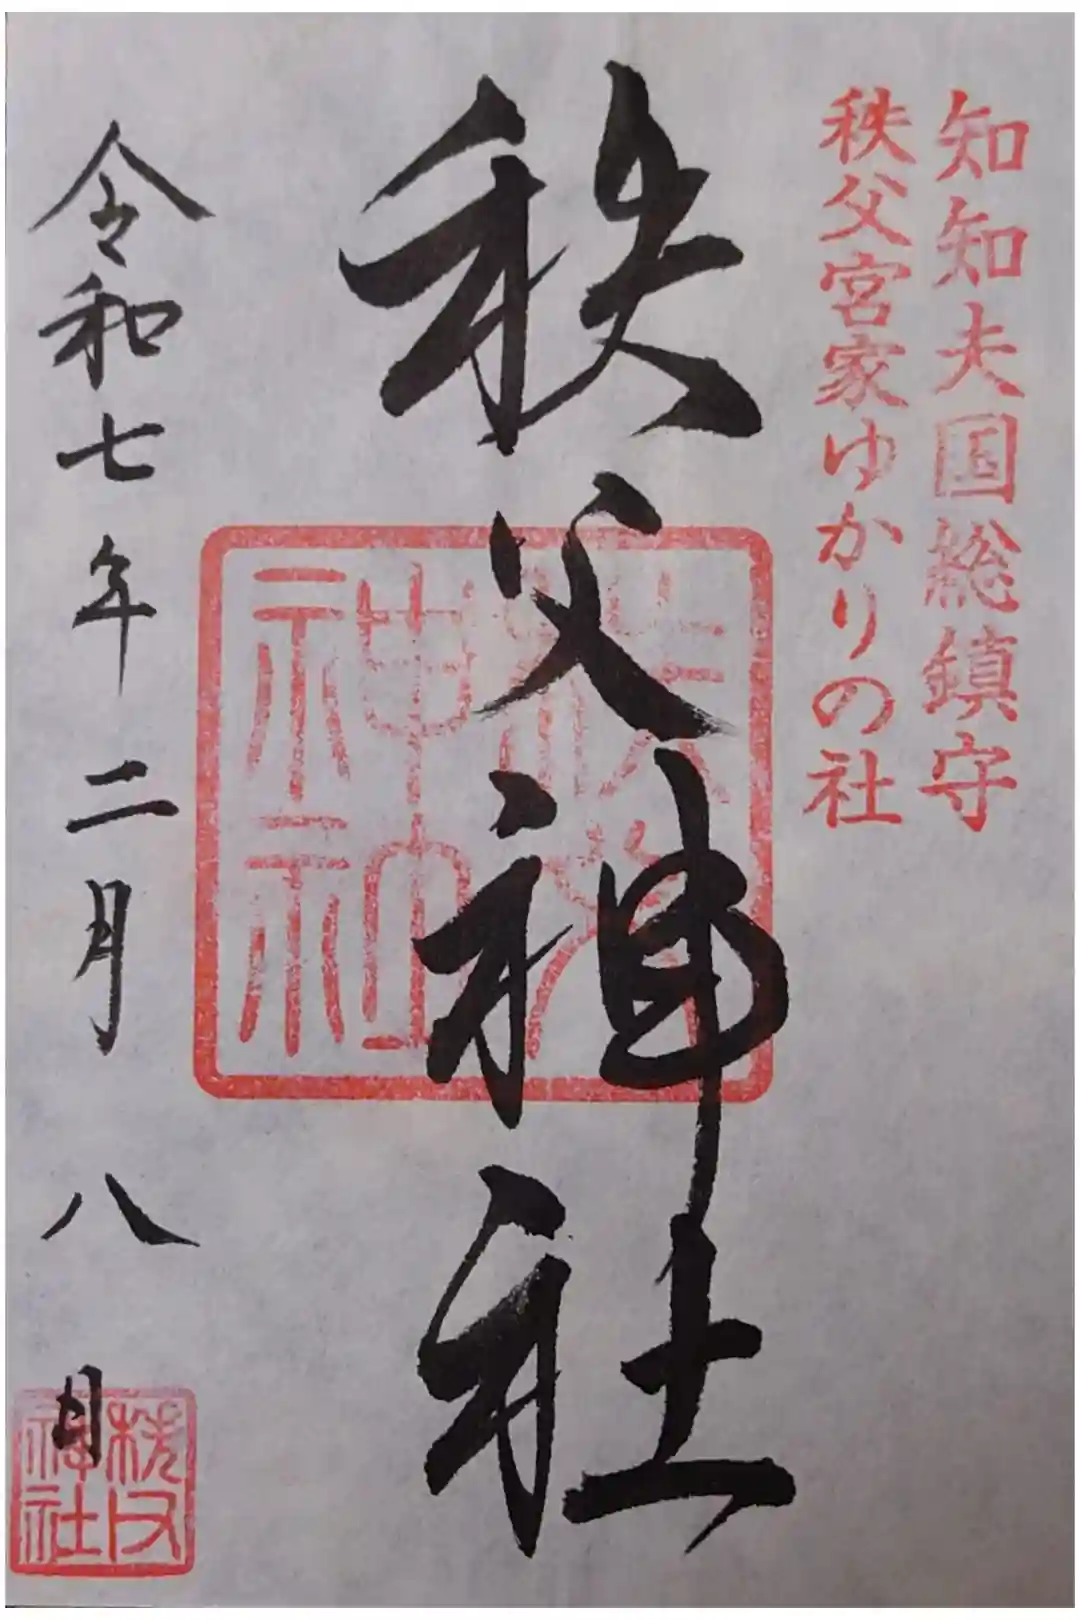 知知夫国総鎮守
秩父宮家ゆかりの社
秩父神社
令和七年二月八日
秩父
神社